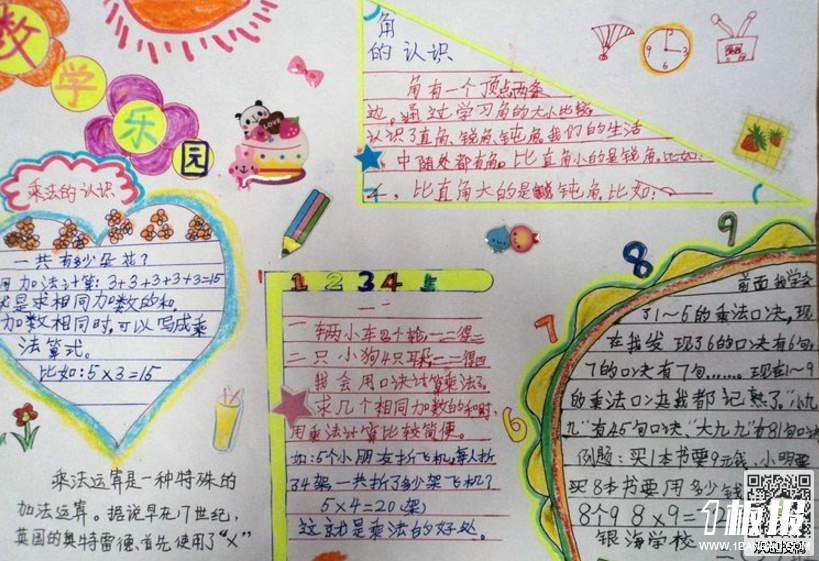 数
学
乐
园
角
的认识
角有一个顶点两条
边。通过学习角的大小比较
认识了直角、锐角、钝角。我们的生活
中随处都有角。比直角小的是锐角。比如:
比直角大的是钝角。比如:
乘法的认识
一共有多少朵花?
用加法计算:3+3+3+3+3=15
是求相同加数的和.
加数相同时,可以写成乘
法算式。
比如:5×3=15
乘法运算是一种特殊的
加法运算。据说早在17世纪,
英国的奥特雷德、首先使用了“×”
1 2 3 4
一辆小车2个轮,一二得二
二只小狗4只耳,
我会用口决计算乘法了。
求几个相同加数的和时,
用乘法计算比较简便。
如:5个小朋友折飞机,每人折
34架,一共折了多少架飞机?
5×4=20(架)
这就是乘法的好处。
6
7
8
9
前面我学会
了1~5的乘法口决,现
在我发现了6的口决有6句,
7的口决有7句.......现在1~9
的乘法口决我都记熟了。“小九
九”有45句口决、“大九九”有81句口决
例题:买1本书要9元钱,小明要
买8本书要用多少钱
8个9 8×9=
银海学校
1板报
WWW.1BANBAO.COM